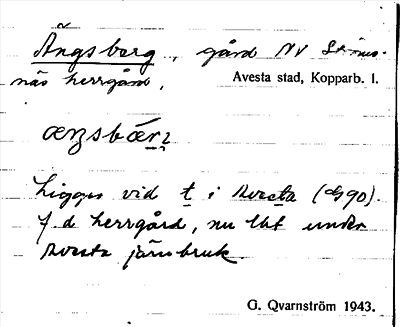 Ängsberg, gård NV Str
näs herrgård. Avesta stad, Kopparb. l.
Ligger vid t i Avesta (G90).
f d herrgård, nu lht under
Avesta järnbruk
G. Qvarnström 1943.